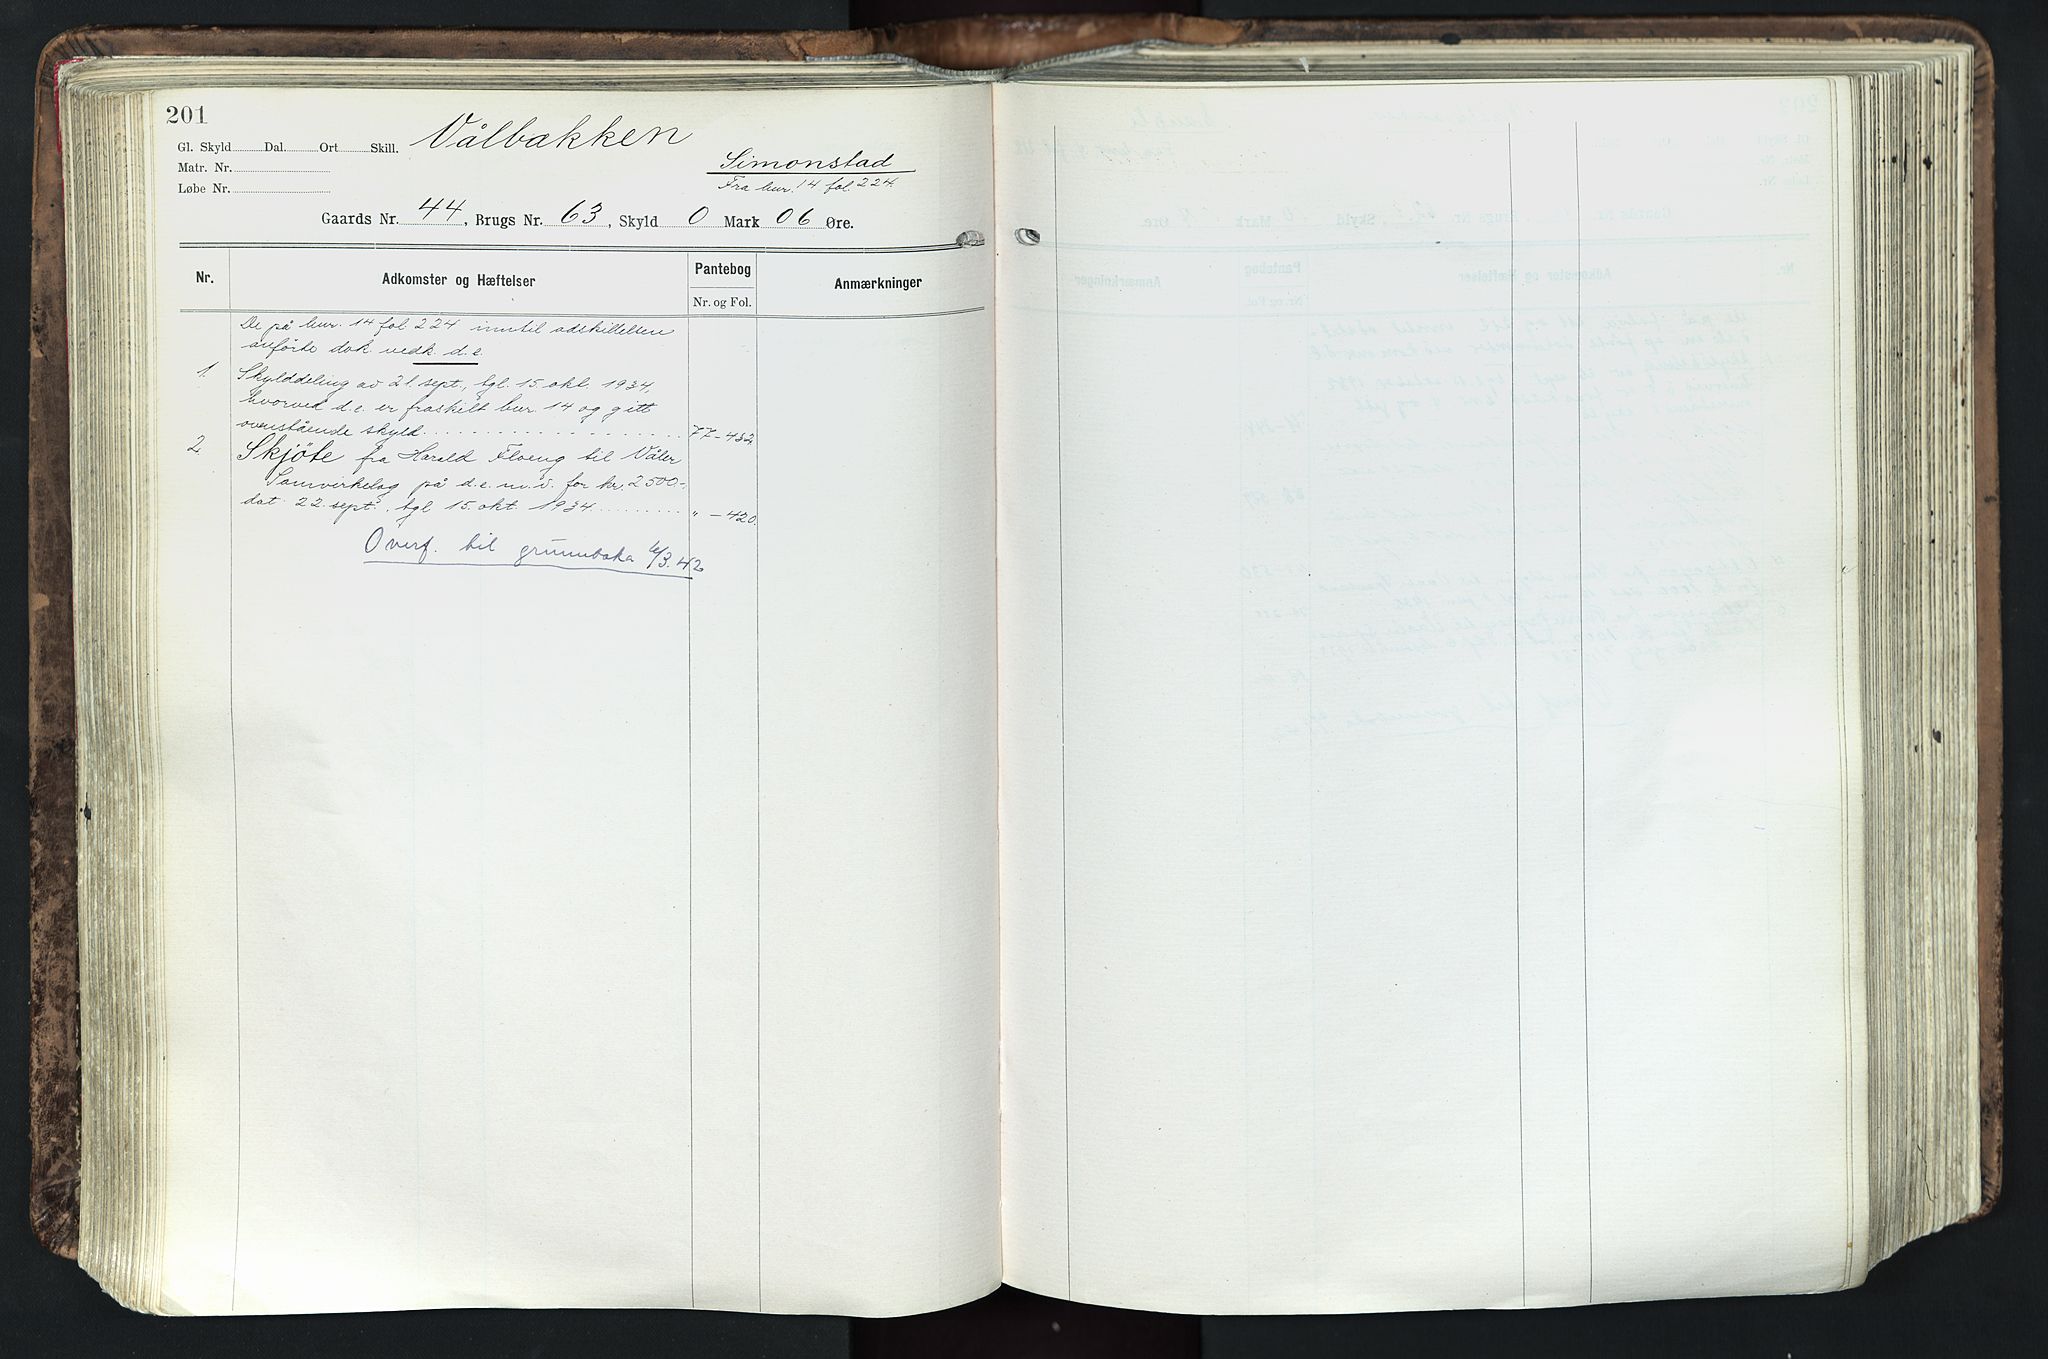 201
Vålbakken
Gl. Skyld Dal. Ort Skill.
Matr. Nr.
Løbe Nr.
Simonstad
Fra bnr. 14 fol. 224.
Gaards Nr. 44, Brugs Nr. 63, Skyld 0 Mark 06 Øre.
Nr. Adkomster og Hæftelser Pantebog Anmærkninger
Nr. og Fol.
De på bnr. 14 fol 224 inntil adskillelsen
anførte dok. vedk. d.e.
1. Skylddeling av 21. sept., tgl. 15. okt. 1934,
hvorved d.e. er fraskilt bnr. 14 og gitt
ovenstående skyld 77-432
2. Skjöte fra Harald Floeng til Våler
Samvirkelag på d.e. m.v. for kr. 2500.-
dat. 22. sept., tgl 15. okt. 1934 " -420.
Overf. til grunnboka 6/3.42